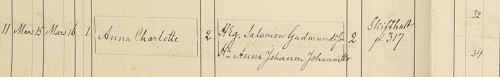 32
11 Mars 15 Mars 16 1. Anna Charlotte 2 Hkg. Salomon Gudmundss. 2 Skifthult
H: Anna Johanna Johansdtr p. 317
34